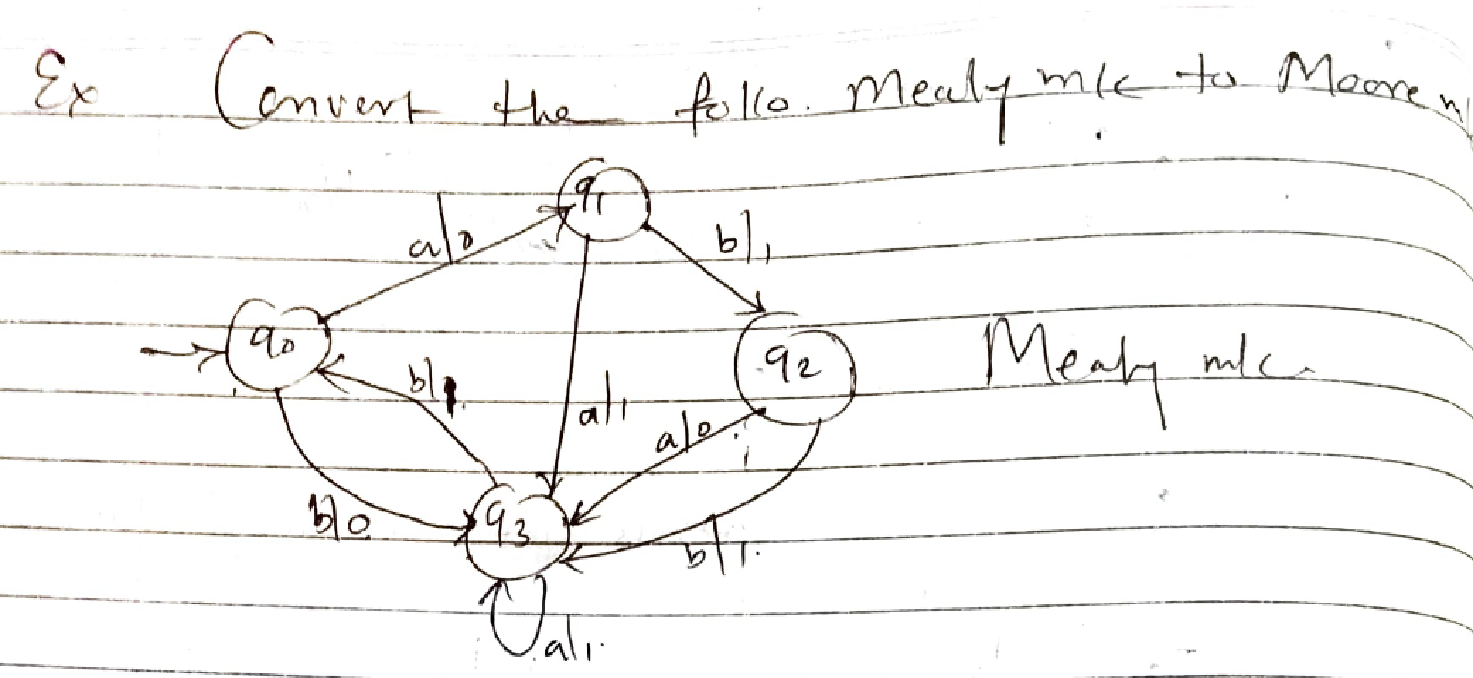 Ex Convert the follo. Mealy m/c to Moore m
q1
a/0 b/1
q0 q2 Mealy m/c
b/1 a/1 a/0
b/0 q3 b/1.
a/1.